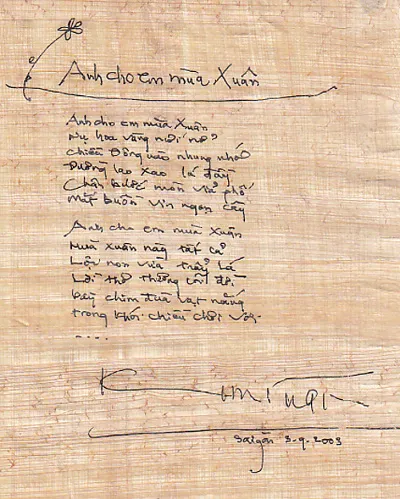 Anh cho em mùa Xuân
Anh cho em mùa Xuân
Nụ hoa vàng mới nở
chiều Đông nào nhung nhớ
Đường lao xao lá đầy
Chân bước mòn vỉa phố
Mắt buồn vin ngọn cây
Anh cho em mùa Xuân
Mùa xuân này tất cả
Lộc non vừa trẩy lá
Lời thơ thương cõi đời
bầy chim đùa vạt nắng
trong khói chiều chơi vơi
....
Saigon 3-9-2003